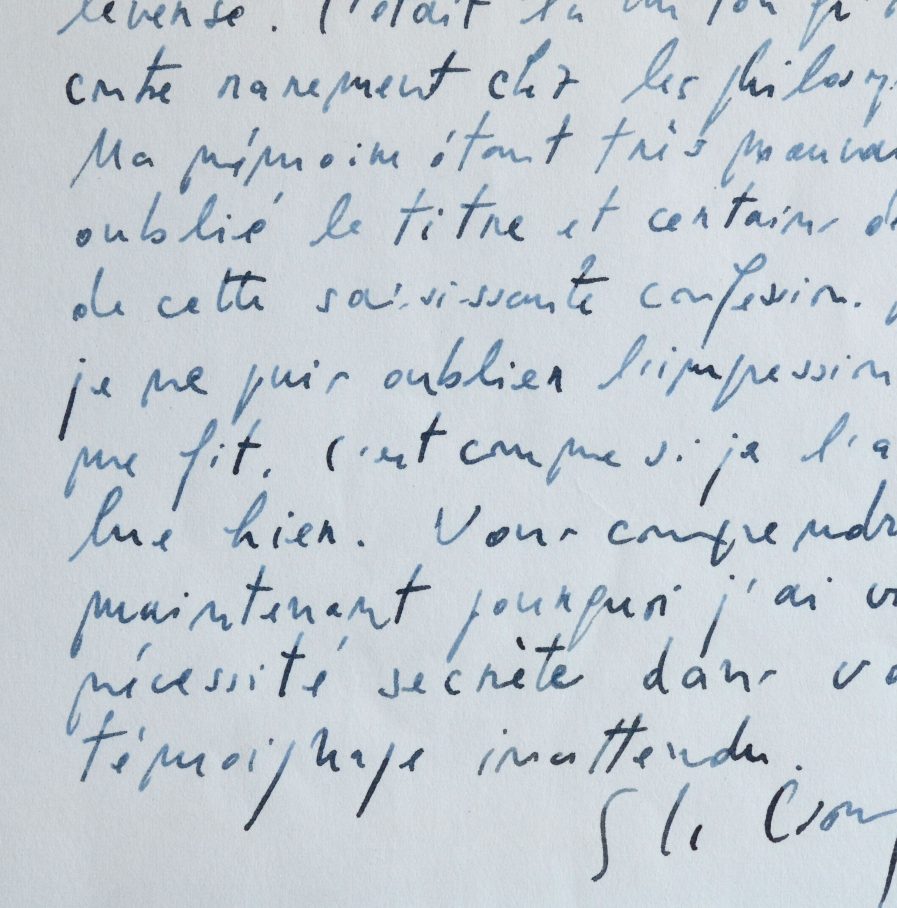 C'était là un ton qu'
contre rarement chez les philosop
Ma mémoire étant très mauvai
oublié le titre et certains dé
de cette saisissante confession.
je ne puis oublier l'impression
me fit. C'est comme si je l'a
lue hier. Vous comprendr
maintenant pourquoi j'ai v
nécessité secrète dans vo
témoignage inattendu.